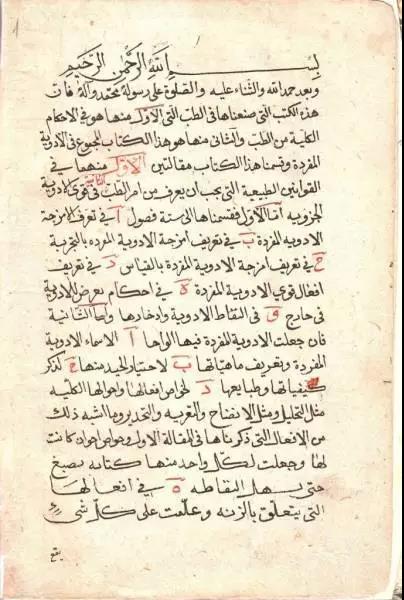 بسم الله الرحمن الرحيم
وبعد حمد الله والثناء عليه والصلوة على رسوله محمد وآله فان
هذه الكتب التى صنعناها فى الطب التى الاول منها هو فى الاحكام
الكلية من الطب والثانى منها هو هذا الكتاب المجموع فى الادوية
المفردة وقسمنا هذا الكتاب مقالتين الاولى منهما فى
القوانين الطبيعية التى يجب ان يعرف من امر الطب فى قوى الادوية
الثانية
الجزويه اما الاول فقسمناها الى ستة فصول ا فى تعرف امزجة
الادويه المفردة ب فى تعريف امزجة الادوية المفرده بالتجربة
ج فى تعريف امزجة الادوية المفردة بالقياس د فى تعريف
افعال قوى الادوية المفردة ه فى احكام يعرض للادوية
فى خارج و فى التقاط الادوية وادخارها واما الثانية
فان جعلت الادوية المفردة فيها الواحا ا الاسماء الادوية
المفردة وتعريف ماهياتها ب لاختيار الجيد منها ج لذكر
كيفياتها وطبايعها د لخواص افعالها واحوالها الكليه
مثل التحليل ومثل الانضاج والتغرية والتخدير وما اشبه ذلك
من الافعال التى ذكرناها فى المقالة الاولى وخواص اخران كانت
لها وجعلت لكل واحد منها كتابه بصبغ
حتى يسهل التقاطه ه فى افعالها
التى يتعلق بالزنه وعلمت على كل شى
يقع